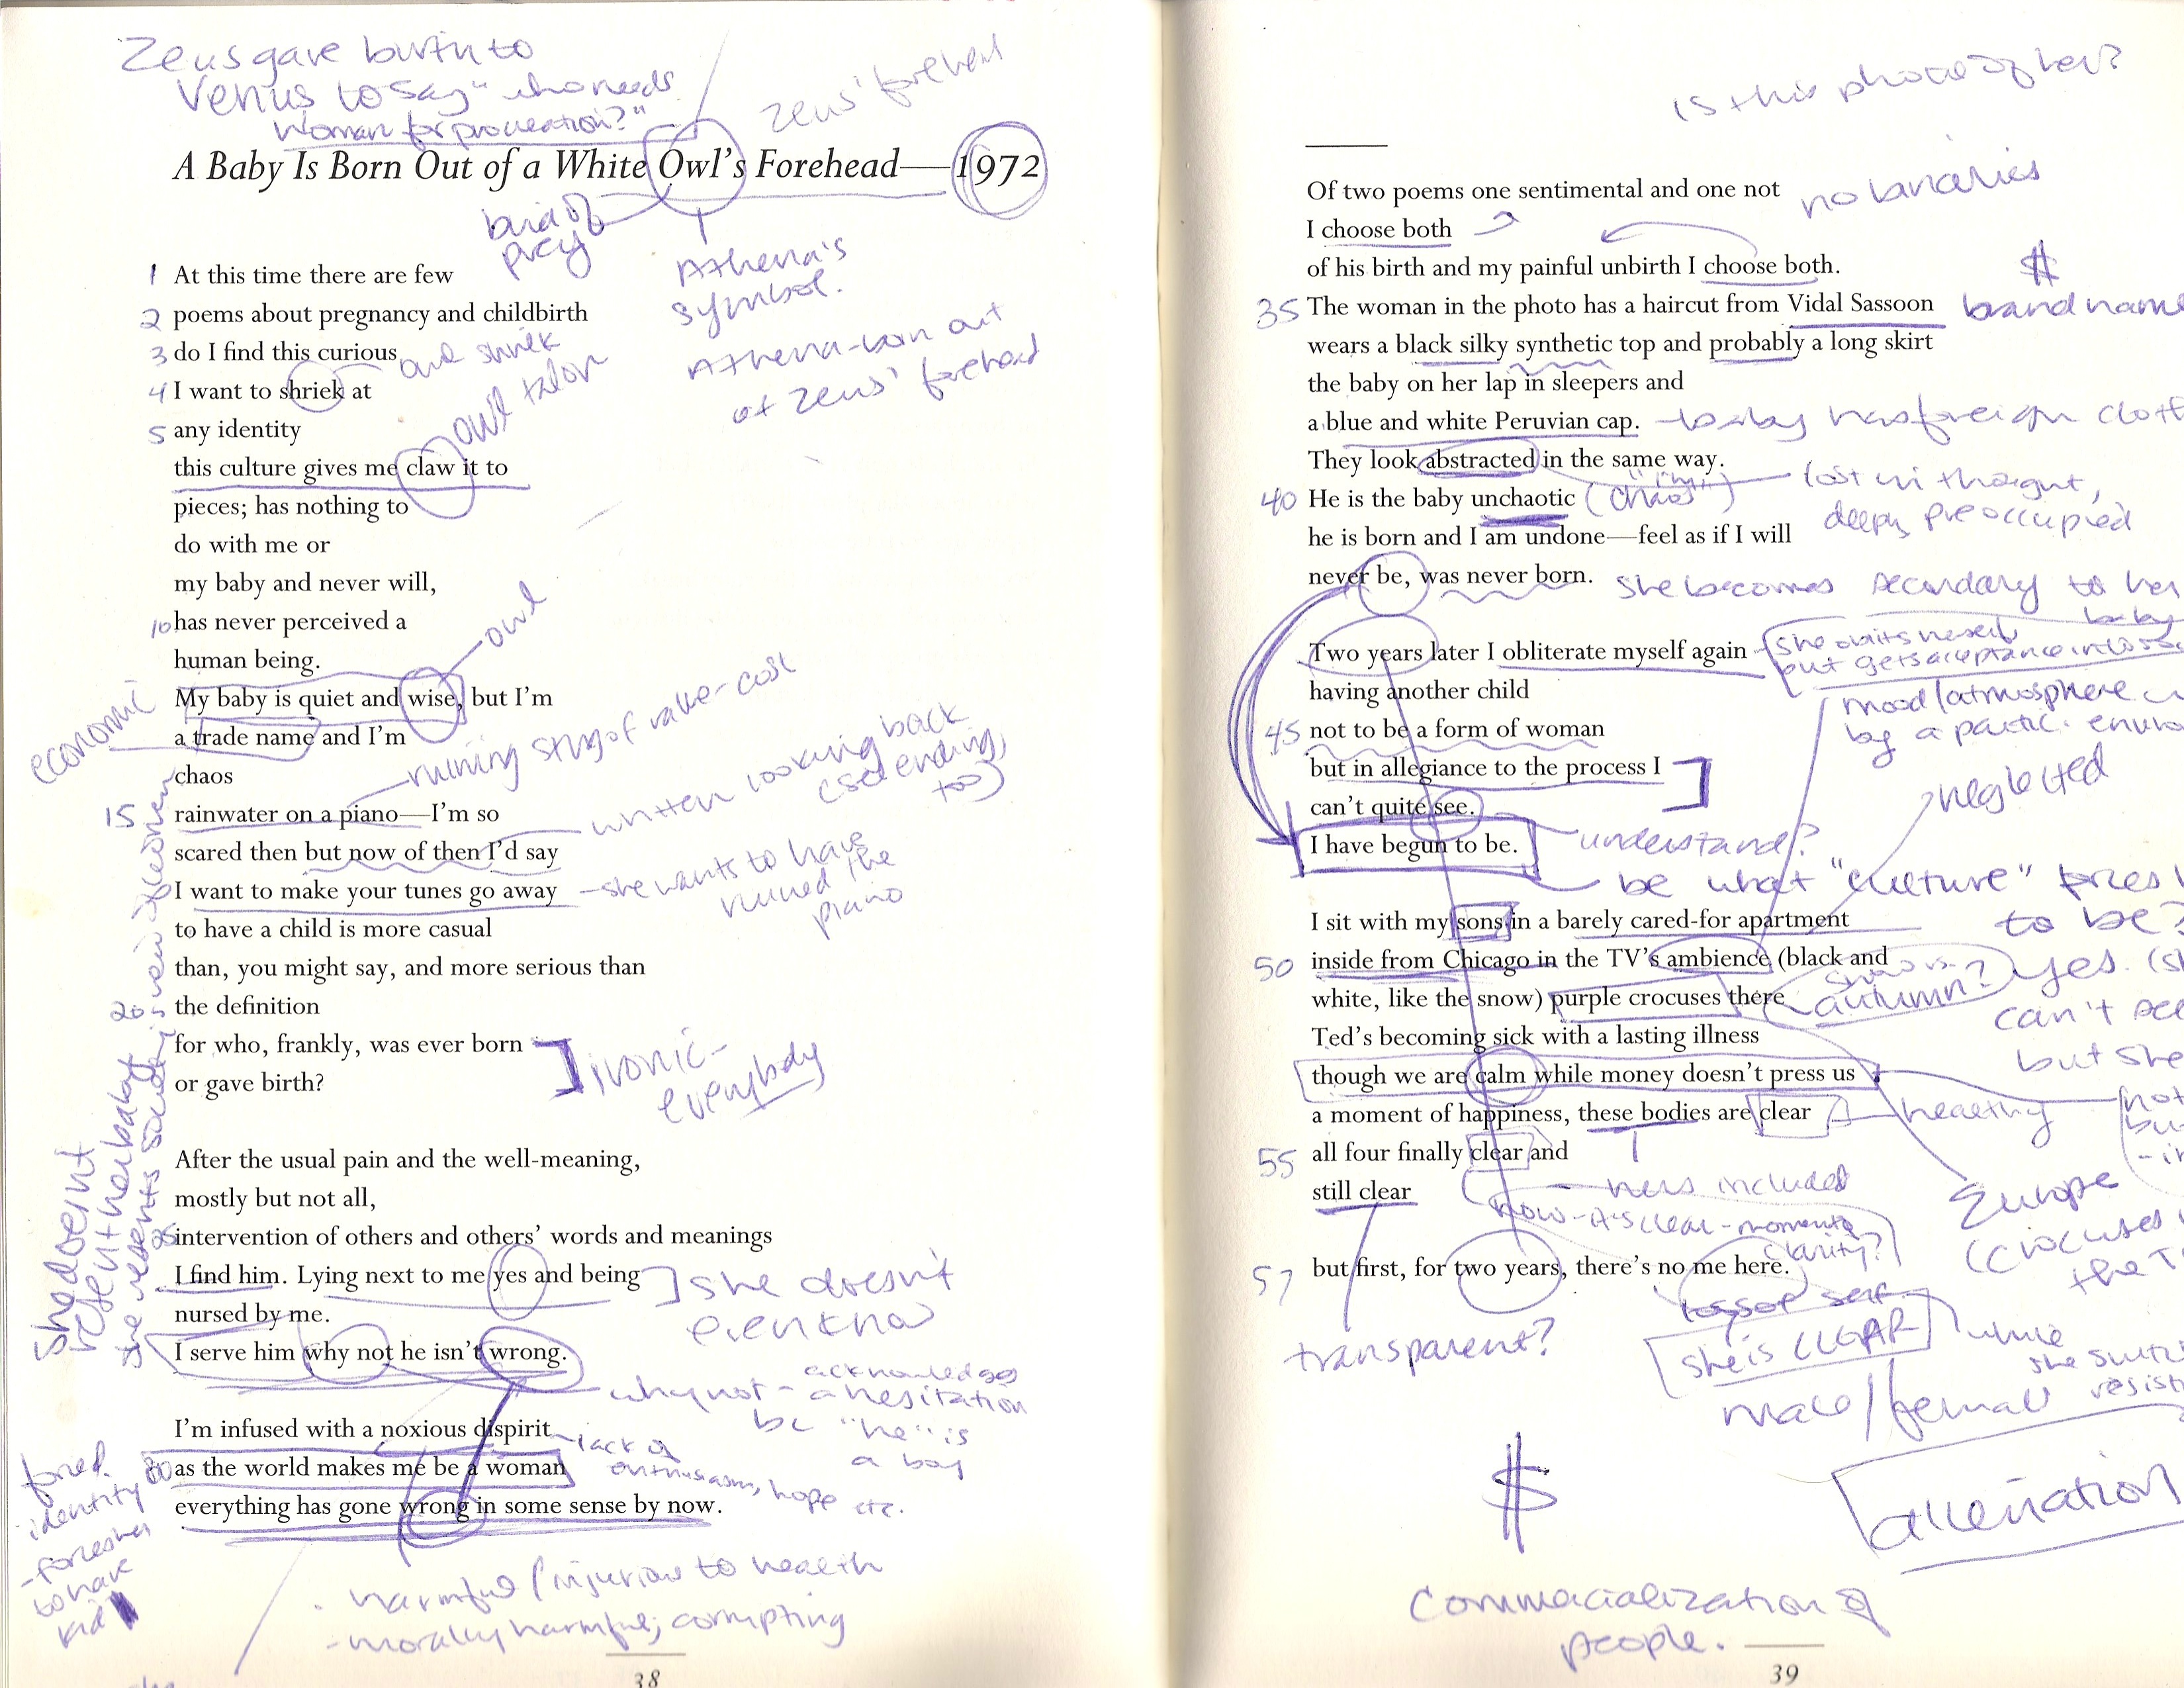 Zeus gave birth to
Venus to say "who needs
woman for procreation?"
Zeus' forehead
A Baby Is Born Out of a White Owl's Forehead—1972
bird of
prey
Athena's
symbol.
Athena-born out
of Zeus' forehead
1 At this time there are few
2 poems about pregnancy and childbirth
3 do I find this curious
owl shriek
4 I want to shriek at
owl talon
5 any identity
this culture gives me claw it to
pieces; has nothing to
do with me or
my baby and never will,
10 has never perceived a
human being.
owl
My baby is quiet and wise, but I'm
a trade name and I'm
economic
chaos
ruining stng of value-cost
15 rainwater on a piano—I'm so
written looking back
(see ending,
too)
scared then but now of then I'd say
I want to make your tunes go away
-she wants to have
ruined the
piano
to have a child is more casual
than, you might say, and more serious than
20 the definition
for who, frankly, was ever born
or gave birth?
ironic-
everybody
After the usual pain and the well-meaning,
mostly but not all,
25 intervention of others and others' words and meanings
I find him. Lying next to me yes and being
nursed by me.
she doesn't
even know
I serve him why not he isn't wrong.
why not - acknowledges
a hesitation
bc "he" is
a boy
she doesnt
resent her baby
she resents society's view of women
I'm infused with a noxious dispirit
-lack of
enthusiasm, hope etc.
30 as the world makes me be a woman
everything has gone wrong in some sense by now.
forced
identity
-forces her
to have
kid
· harmful/injurious to health
-morally harmful; corrupting
38
is this photo of her?
Of two poems one sentimental and one not
no binaries
I choose both
of his birth and my painful unbirth I choose both.
$
35 The woman in the photo has a haircut from Vidal Sassoon
brand name
wears a black silky synthetic top and probably a long skirt
the baby on her lap in sleepers and
a blue and white Peruvian cap.
-baby has foreign cloth
They look abstracted in the same way.
lost in thought,
deeply preoccupied
40 He is the baby unchaotic
("I'm
chaos")
he is born and I am undone—feel as if I will
never be, was never born.
she becomes secondary to her
baby
Two years later I obliterate myself again
she omits herself
but gets acceptance in
having another child
mood/atmosphere
by a partic. enviro
45 not to be a form of woman
but in allegiance to the process I
neglected
can't quite see.
understand?
I have begun to be.
be what "culture" forces
to be?
I sit with my sons in a barely cared-for apartment
50 inside from Chicago in the TV's ambience (black and
white, like the snow) purple crocuses there
snow vs.
autumn?
yes.
can't see
but she
Ted's becoming sick with a lasting illness
though we are calm while money doesn't press us
a moment of happiness, these bodies are clear
healthy
not
bu
55 all four finally clear and
still clear
- hers included
now-it's clear-moment of
clarity?
Europe
(crocuses
the T
57 but first, for two years, there's no me here.
loss of self
transparent?
she is CLEAR
while
she
resist
male/female
$
alienation
Commercialization of
people.
39